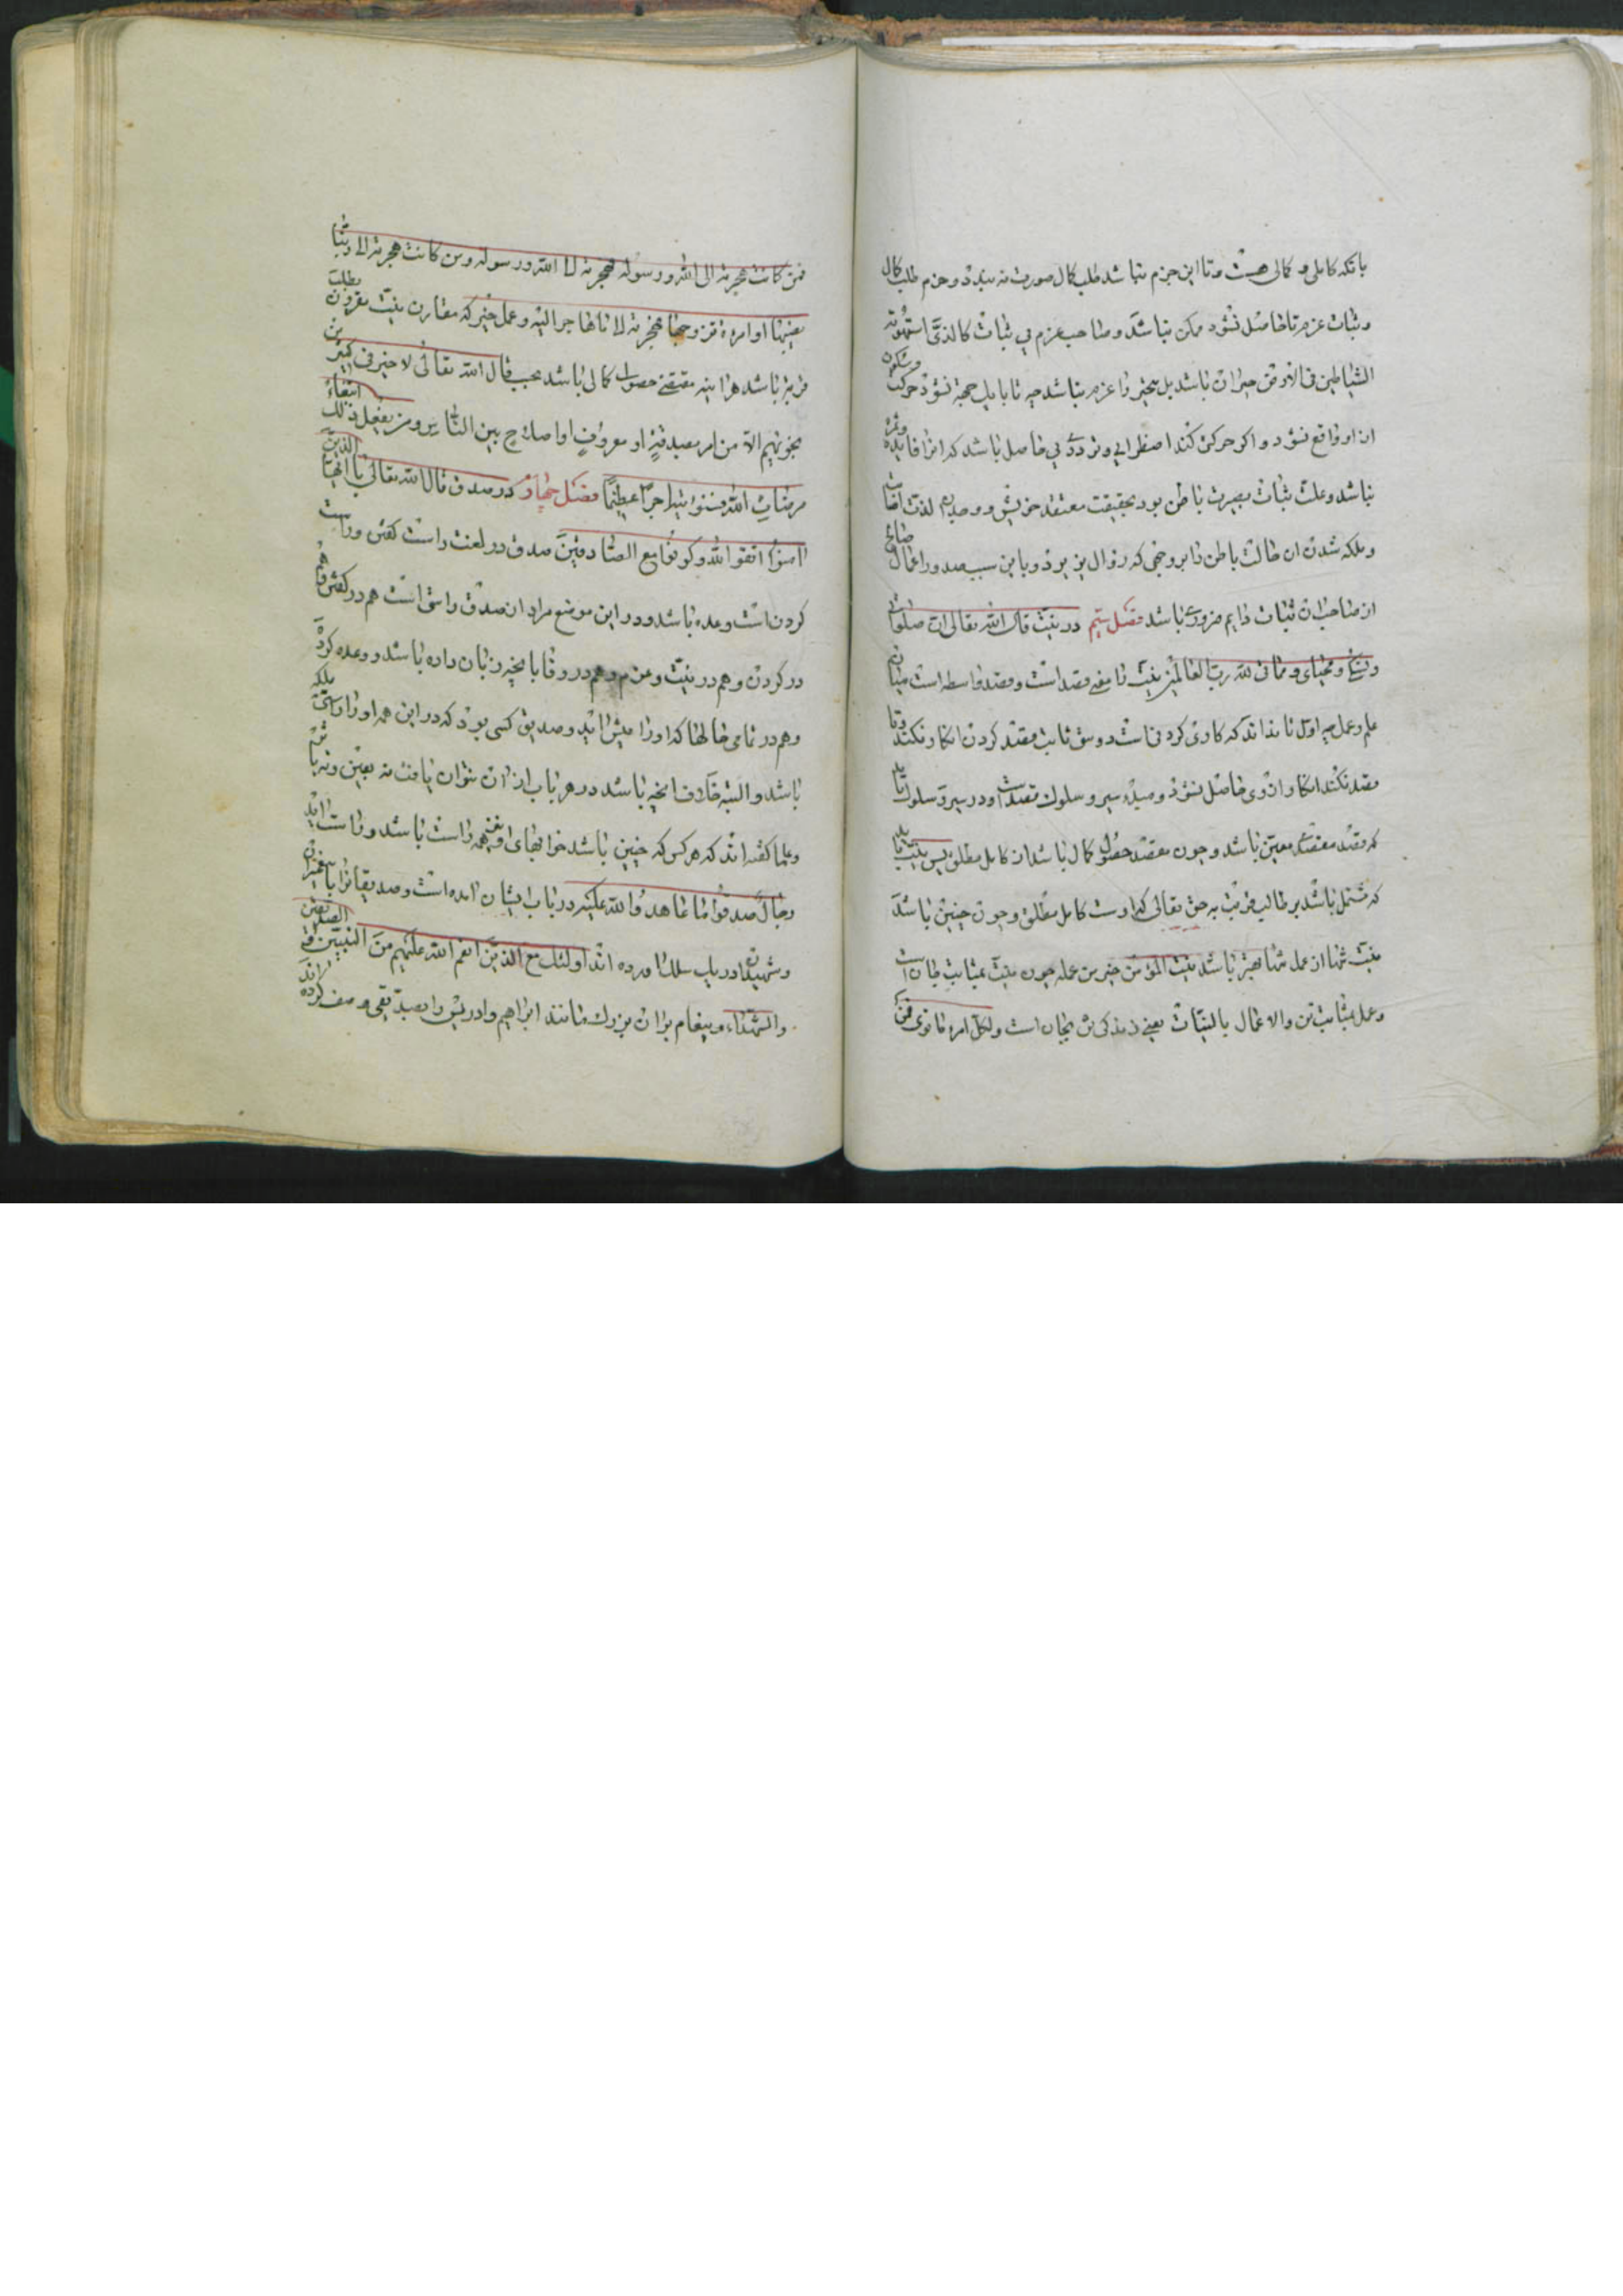 بانکه کاملی و کمالی هست و تا این جزم نباشد طلب کمال صورت نه بندد و جزم طلب کمال
و ثبات عزم تا حاصل نشود ممکن نباشد و صاحب عزم بی ثبات کالذی استهوته
الشیاطین فی الارض حیران باشد بل متحیر را عزم نباشد چه تا بایل جهة نشود حرکت و سکون
ازو واقع نشود و اکر حرکتی کند اضطرابی و ترددی بی حاصل باشد که انرا فایده و ثمره
نباشد و علت ثبات بصیرت باطن بود بحقیقت معتقد خویش و وجدان لذت اصابت
و ملکه شدن ان حالت باطن را بر وجهی که زوال نپذیرد و باین سبب صدور اعمال صالح
از صاحبان ثبات دایم ضروری باشد فصل سیم در نیت قال الله تعالی ان صلوتی
و نسکی و محیای و مماتی لله رب العالمین نیت را معنی قصد است و قصد واسطه است میان
علم و عمل چه اول تا نداند که کاری کردنی است دوم ثابت قصد کردن انکار نکند و تا
قصد نکند انکار ازوی حاصل نشود و مبدء سیر و سلوک قصد است و در سیر و سلوک باید
که قصد مقصدی معین باشد و چون مقصد حصول کمال باشد از کامل مطلق پس نیت باید
که مشتمل باشد بر طلب قربت به حق تعالی که اوست کامل مطلق و چون چنین باشد
نیت تنها از عمل تنها بهتر باشد نیت المؤمن خیر من عمله چون نیت بمثابت جان است
و عمل بمثابت تن والاعمال بالنیات یعنی زندکی تن بجان است ولکل امرء ما نوی فمن
فمن کانت هجرته الی الله و رسوله فهجرته الی الله و رسوله و من کانت هجرته الی دنیا
یصیبها او امرءة تزوجها فهجرته الی ما هاجر الیه و عمل خیر که مقارن نیت مقرون بطلب
قربت باشد هراینه مقتضی حصول کمالی باشد بحسب قال الله تعالی لا خیر فی کثیر من
نجویهم الا من امر بصدقة او معروف او اصلاح بین الناس و من یفعل ذلک ابتغاء
مرضات الله فسوف نؤتیه اجرا عظیما فصل چهارم در صدق قال الله تعالی یا ایها الذین
امنوا اتقوا الله و کونوا مع الصادقین صدق در لغت راست کفتن و راست
کردن است وعده باشد و در این موضع مراد ان صدق راستی است هم در کفتن و هم
در کردن و هم در نیت و عزم و هم در وفا بانچه زبان داده باشد و وعده کرده
و هم در تمامی حالها که او را پیش اید و صدیق کسی بود که در این همه او را راستی ملکه
باشد و البته خلاف انچه باشد در هر باب از ان نتوان یافت نه بعین و نه باثر
و علما کفته اند که هر کس که چنین باشد خوابهای او نیز همه راست باشد و راست اید
رجال صدقوا ما عاهدوا الله علیه در باب ایشان امده است و صدیقانرا با پیغمبران
و شهیدان در یک سلک اورده اند اولئک مع الذین انعم الله علیهم من النبیین و الصدیقین
والشهداء و پیغام بران بزرک مانند ابراهیم و ادریس را بصدیقی وصف کرده اند